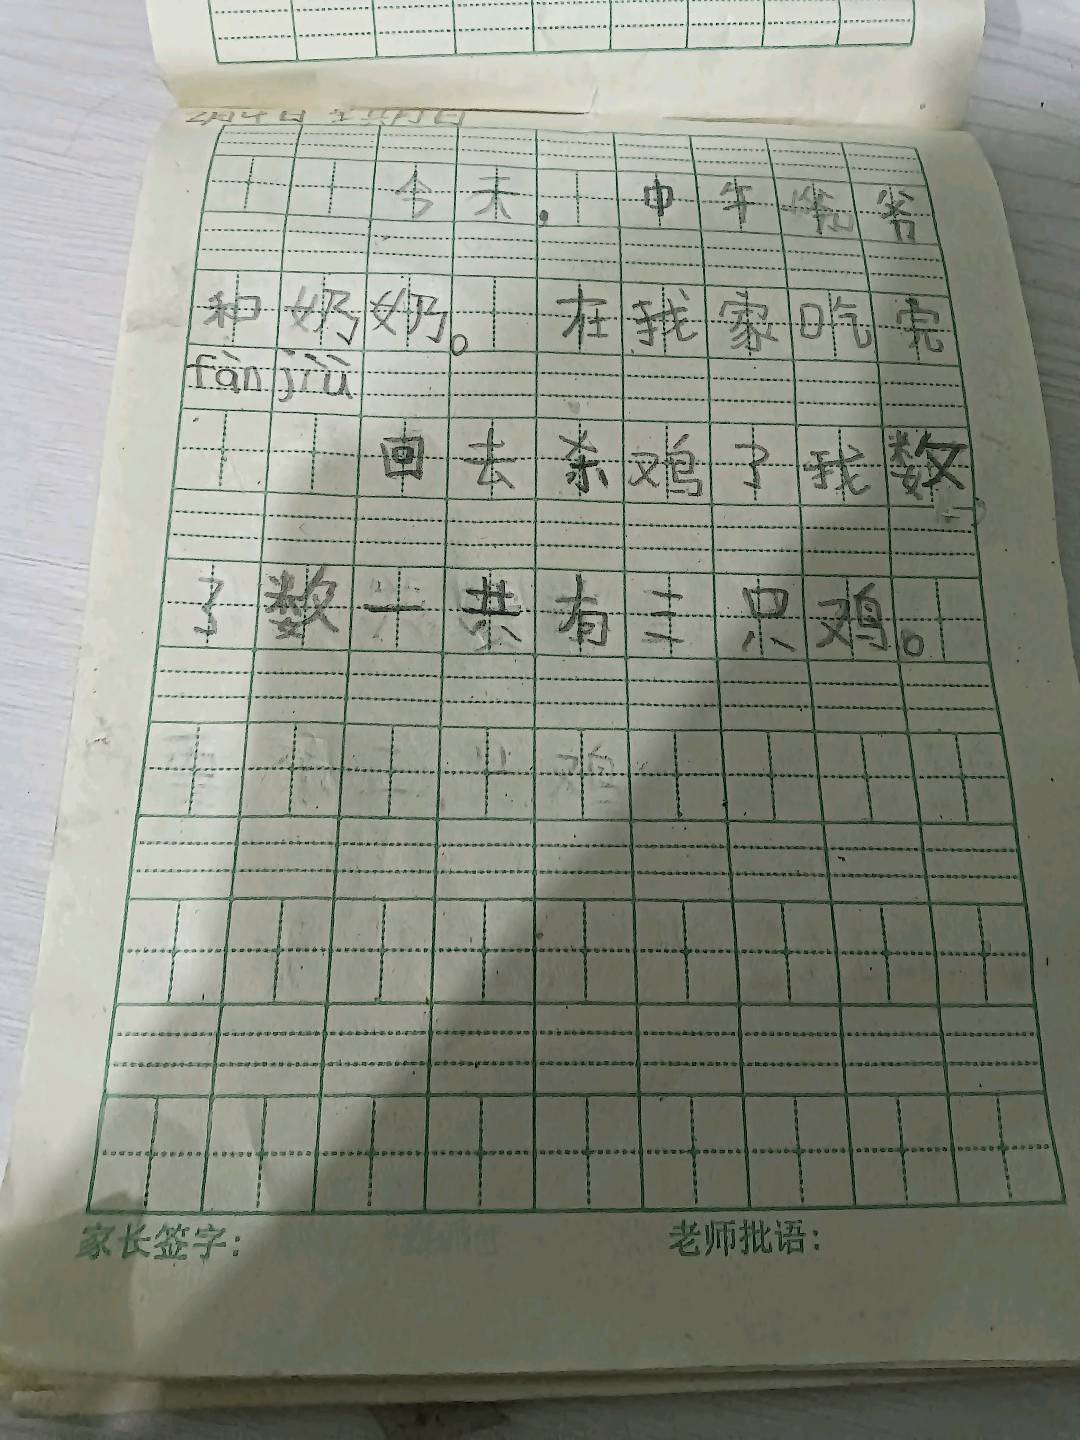 2月4日 星期日
今天，中午爷爷
和奶奶。在我家吃完
fàn jiù
回去杀鸡了我数，
了数一共有三只鸡。
家长签字： 老师批语：